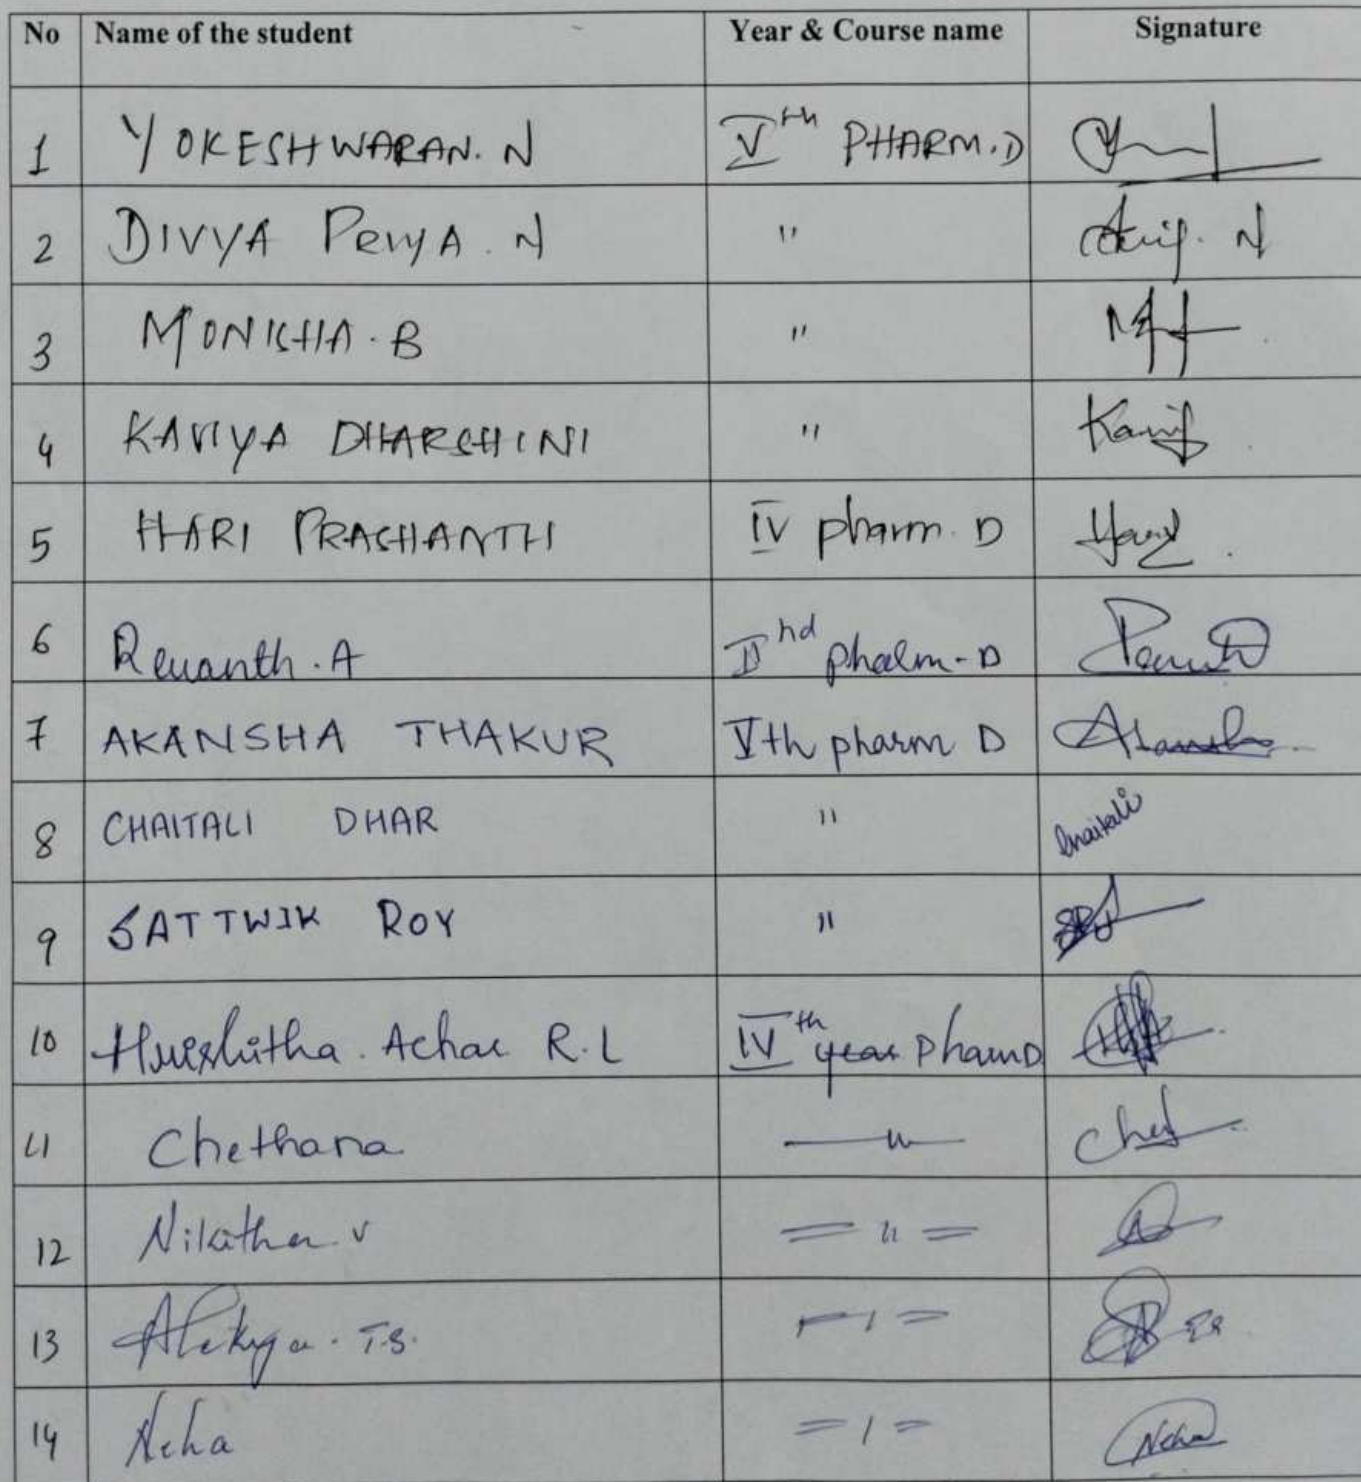 No Name of the student Year & Course name Signature
1 YOKESHWARAN. N Vth PHARM.D
2 DIVYA PRIYA. N " N
3 MONISHA. B "
4 KAVIYA DHARSHINI "
5 HARI PRASHANTH IV pharm. D
6 Revanth. A IInd pharm-D
7 AKANSHA THAKUR Vth pharm D
8 CHAITALI DHAR " Chaitali
9 SATTWIK ROY "
10 Achar R.L IVth year PharmD
11 Chethana — " — Chet
12 Nikitha V = " =
13 Alekya. T.S.
14 Neha Neha